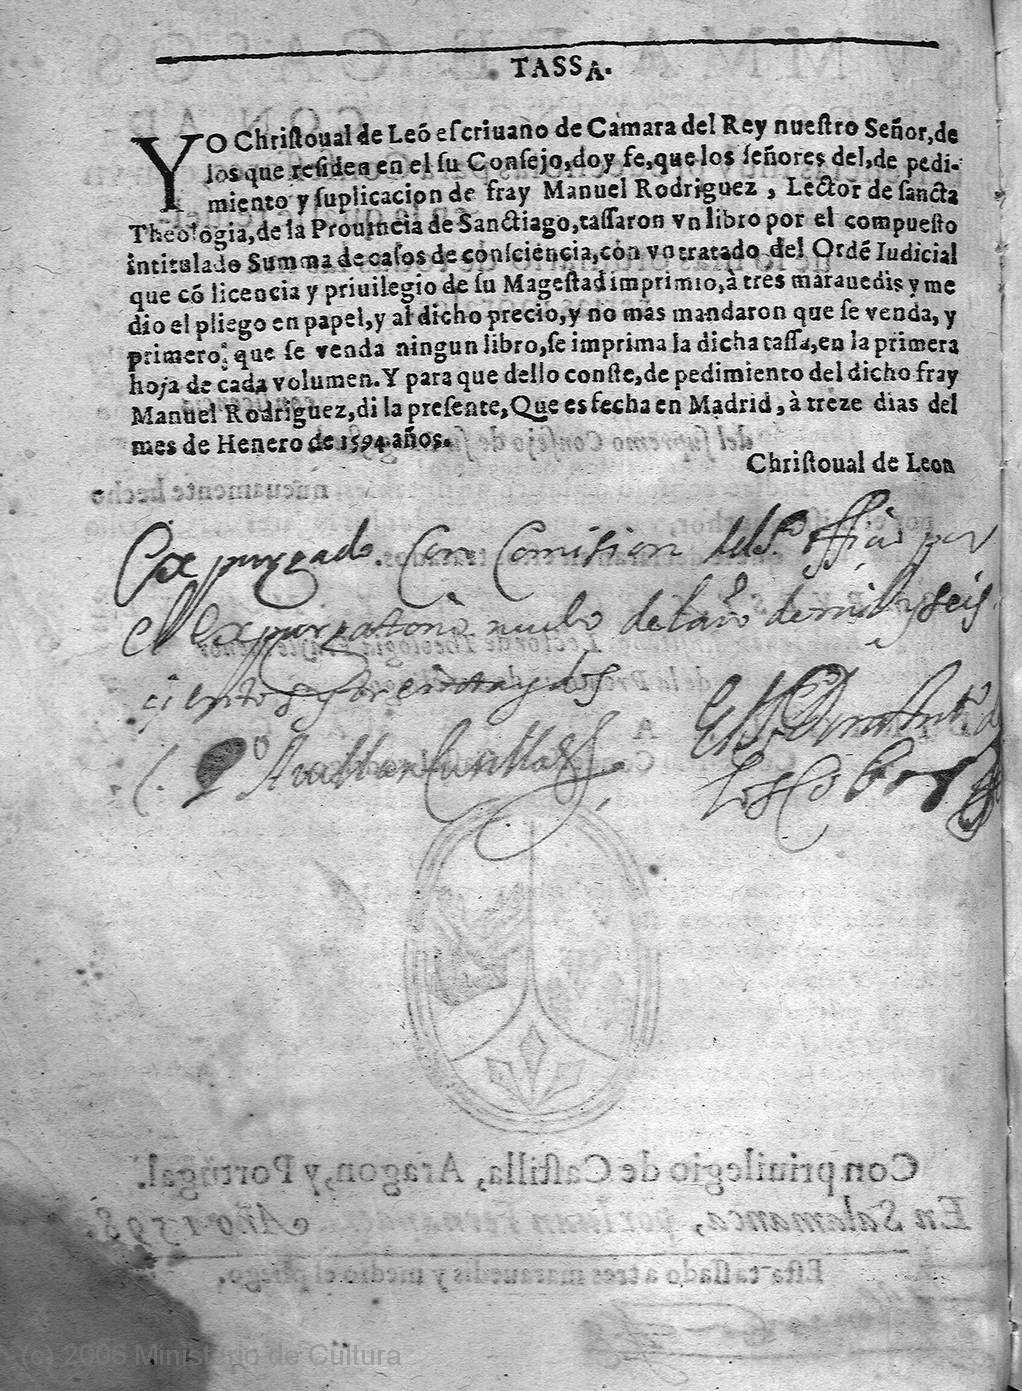 TASSA.
YO Christoual de Leõ escriuano de Càmara del Rey nuestro Señor, de
los que residen en el su Consejo, doy fe, que los señores del, de pedi-
miento y suplicacion de fray Manuel Rodriguez, Lector de sancta
Theologia, de la Prouincia de Sanctiago, tassaron vn libro por el compuesto
intitulado Summa de casos de consciencia, con vn tratado del Ordẽ Iudicial
que cõ licencia y priuilegio de su Magestad imprimio, à tres marauedis y me
dio el pliego en papel, y al dicho precio, y no mas mandaron que se venda, y
primero que se venda ningun libro, se imprima la dicha tassa, en la primera
hoja de cada volumen. Y para que dello conste, de pedimiento del dicho fray
Manuel Rodriguez, di la presente, Que es fecha en Madrid, à treze dias del
mes de Henero de 1594 años.
Christoual de Leon
Expurgado. Con Comision del S.º offiçio por
el Expurgatorio nuebo del año de mil y seis
çientos y treinta y dos
Con priuilegio de Castilla, Aragon, y Portugal.
En Salamanca, por Iuan Fernandez. Año 1598.
Esta tassado a tres marauedis y medio el pliego.
(c) 2006 Ministerio de Cultura